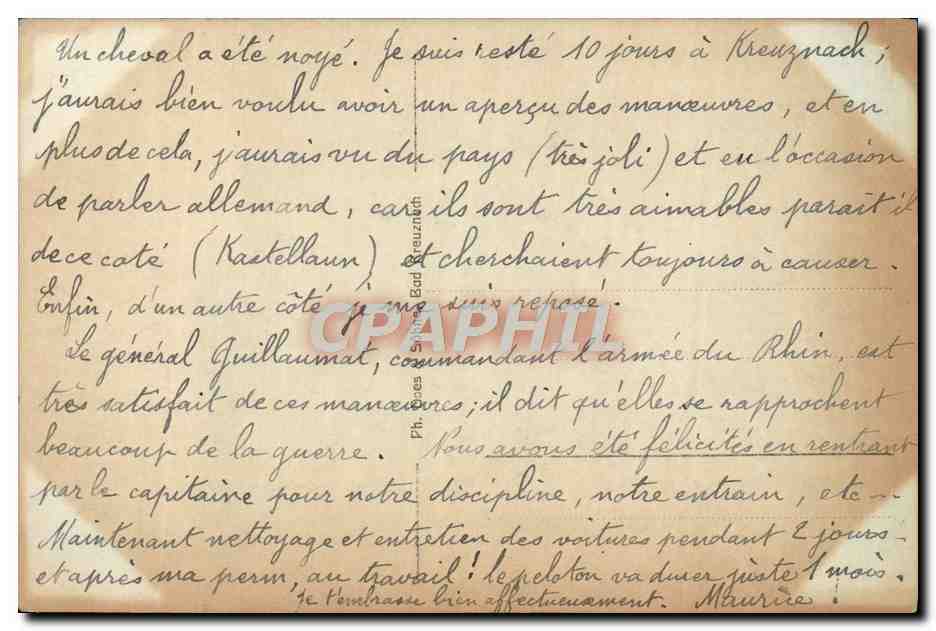 Un cheval a été noyé. Je suis resté 10 jours à Kreuznach ;
j'aurais bien voulu avoir un aperçu des manœuvres, et en
plus de cela, j'aurais vu du pays (très joli) et eu l'occasion
de parler allemand, car ils sont très aimables parait il
de ce coté (Kastellaun) et cherchaient toujours à causer.
Enfin, d'un autre côté je me suis reposé.
Le général Guillaumat, commandant l'armée du Rhin, est
très satisfait de ces manœuvres ; il dit qu'elles se rapprochent
beaucoup de la guerre. Nous avons été félicités en rentrant
par le capitaine pour notre discipline, notre entrain, etc -
Maintenant nettoyage et entretien des voitures pendant 2 jours -
et après ma perm, au travail ! le peloton va durer juste 1 mois.
Je t'embrasse bien affectueusement. Maurice.
Ph. & Söhne, Bad Kreuznach
CPAPHIL